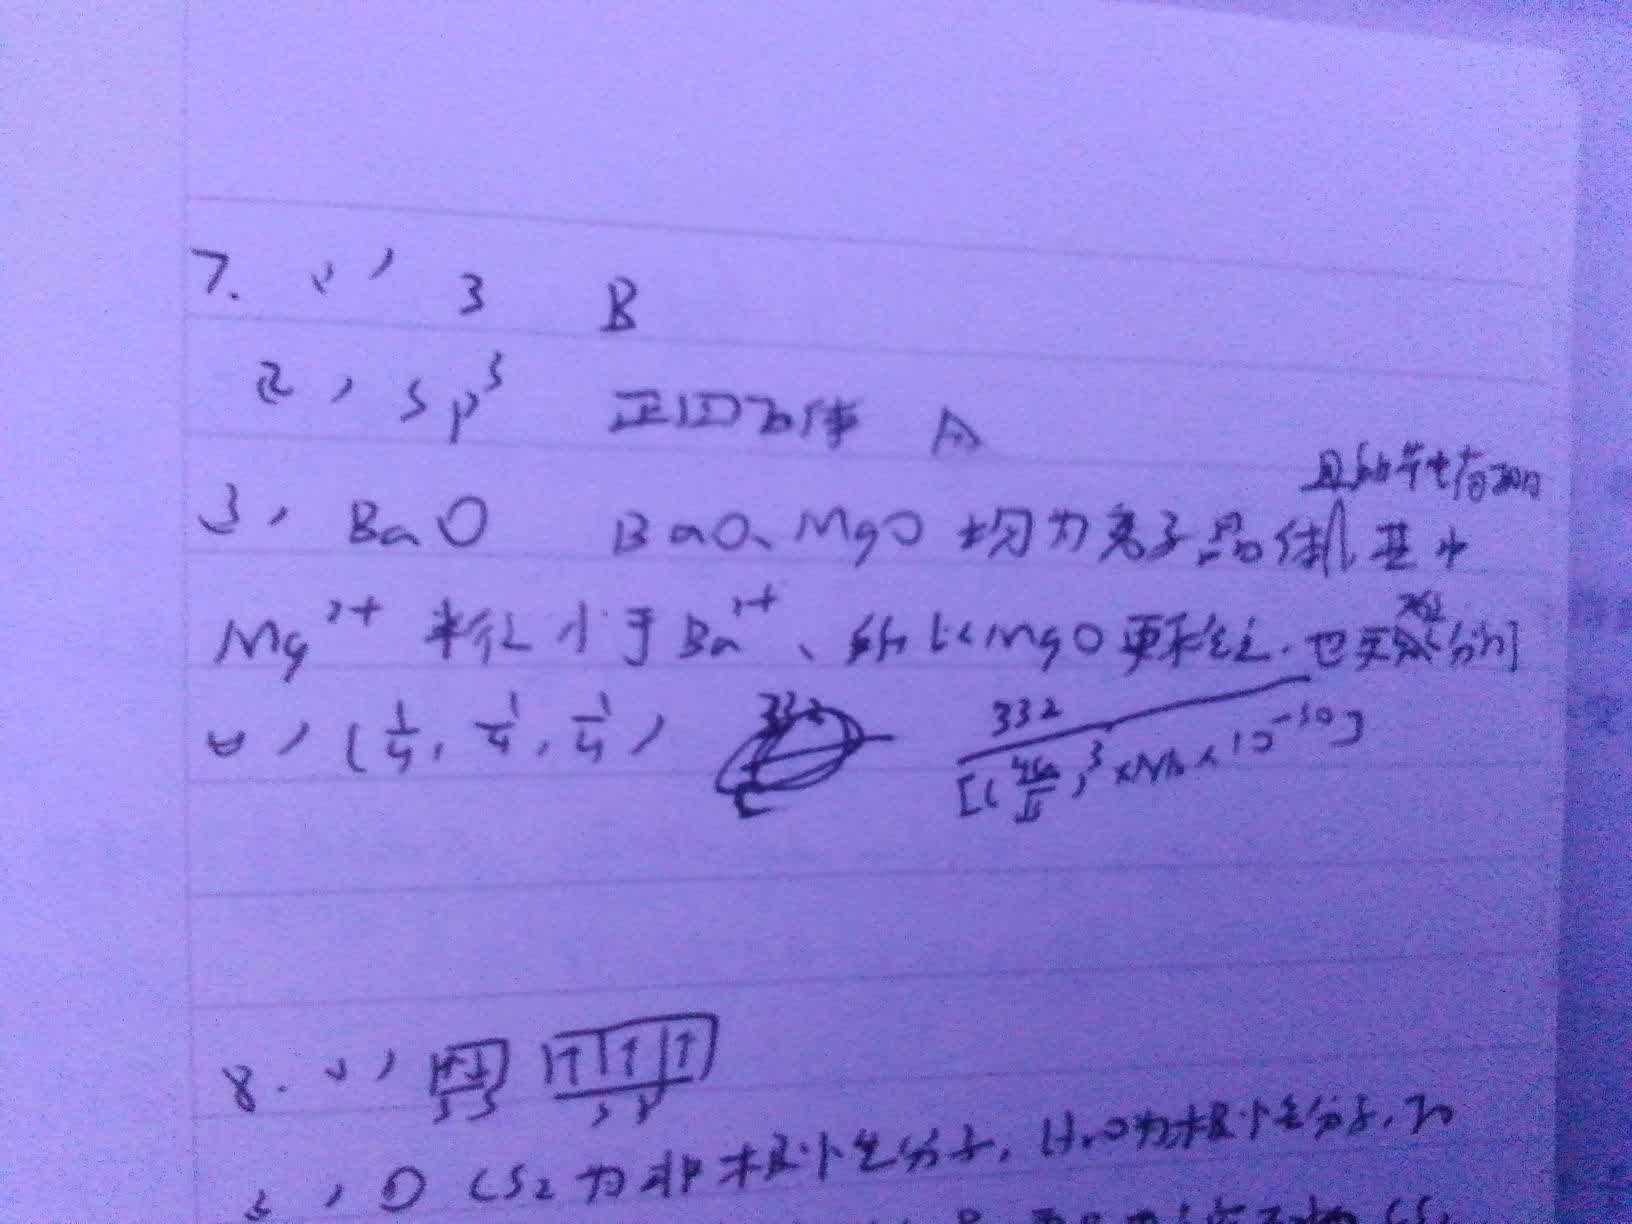 7. (1) 3 B
2, sp³ 正四面体 A
且所带电荷
3, BaO BaO、MgO 均为离子晶体, 其中
Mg²⁺ 半径小于Ba²⁺、所以MgO更稳定. 也更难分解
4, (1/4, 1/4, 1/4) 332 / [( )³×NA×10⁻³⁰]
8. (1) ↑↓ 3s ↑ ↑ ↑ 3p
2, ① CS₂为非极性分子, H₂O为极性分子,